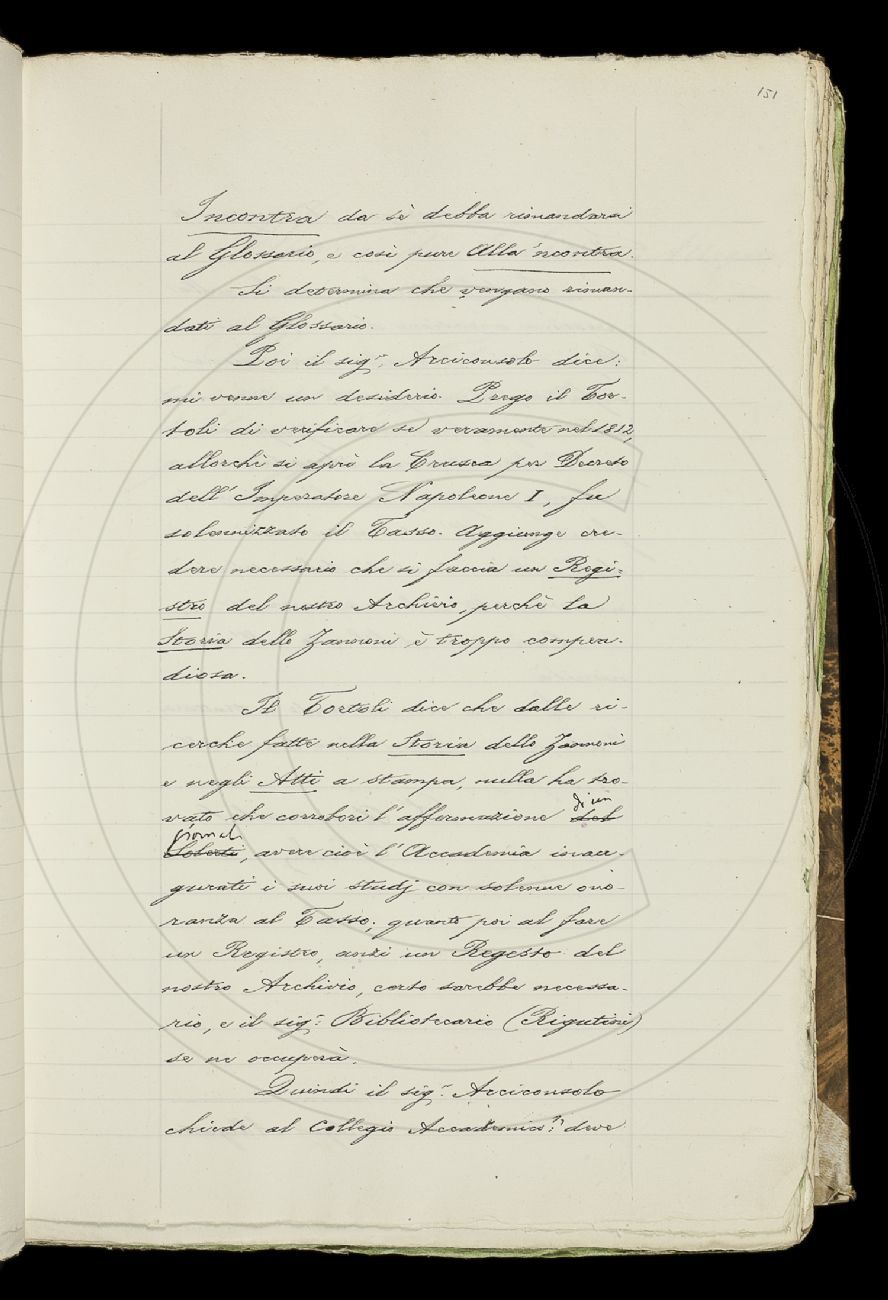 151
Incontra da sè debba rimandarsi
al Glossario, e così pure Alla 'ncontra.
Si determina che vengano riman-
dati al Glossario.
Poi il sig.r Arciconsolo dice:
mi venne un desiderio. Prego il Tor-
toli di verificare se veramente nel 1812,
allorchè si aprì la Crusca per Decreto
dell' Imperatore Napoleone I, fu
solennizzato il Tasso. Aggiunge cre-
dere necessario che si faccia un Regi-
stro del nostro Archivio, perchè la
Storia dello Zannoni è troppo compen-
diosa.
Il Tortoli dice che dalle ri-
cerche fatte nella Storia dello Zannoni
e negli Atti a stampa, nulla ha tro-
vato che corrobori l' affermazione del di un
Solerti giornale, avere cioè l' Accademia inau-
gurati i suoi studj con solenne ono-
ranza al Tasso; quanto poi al fare
un Registro, anzi un Regesto del
nostro Archivio, certo sarebbe necessa-
rio, e il sig.r Bibliotecario (Rigutini)
se ne occuperà.
Quindi il sig.r Arciconsolo
chiede al Collegio deve